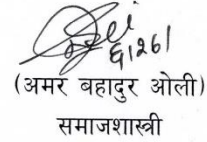 (अमर बहादुर ओली)
समाजशास्त्री